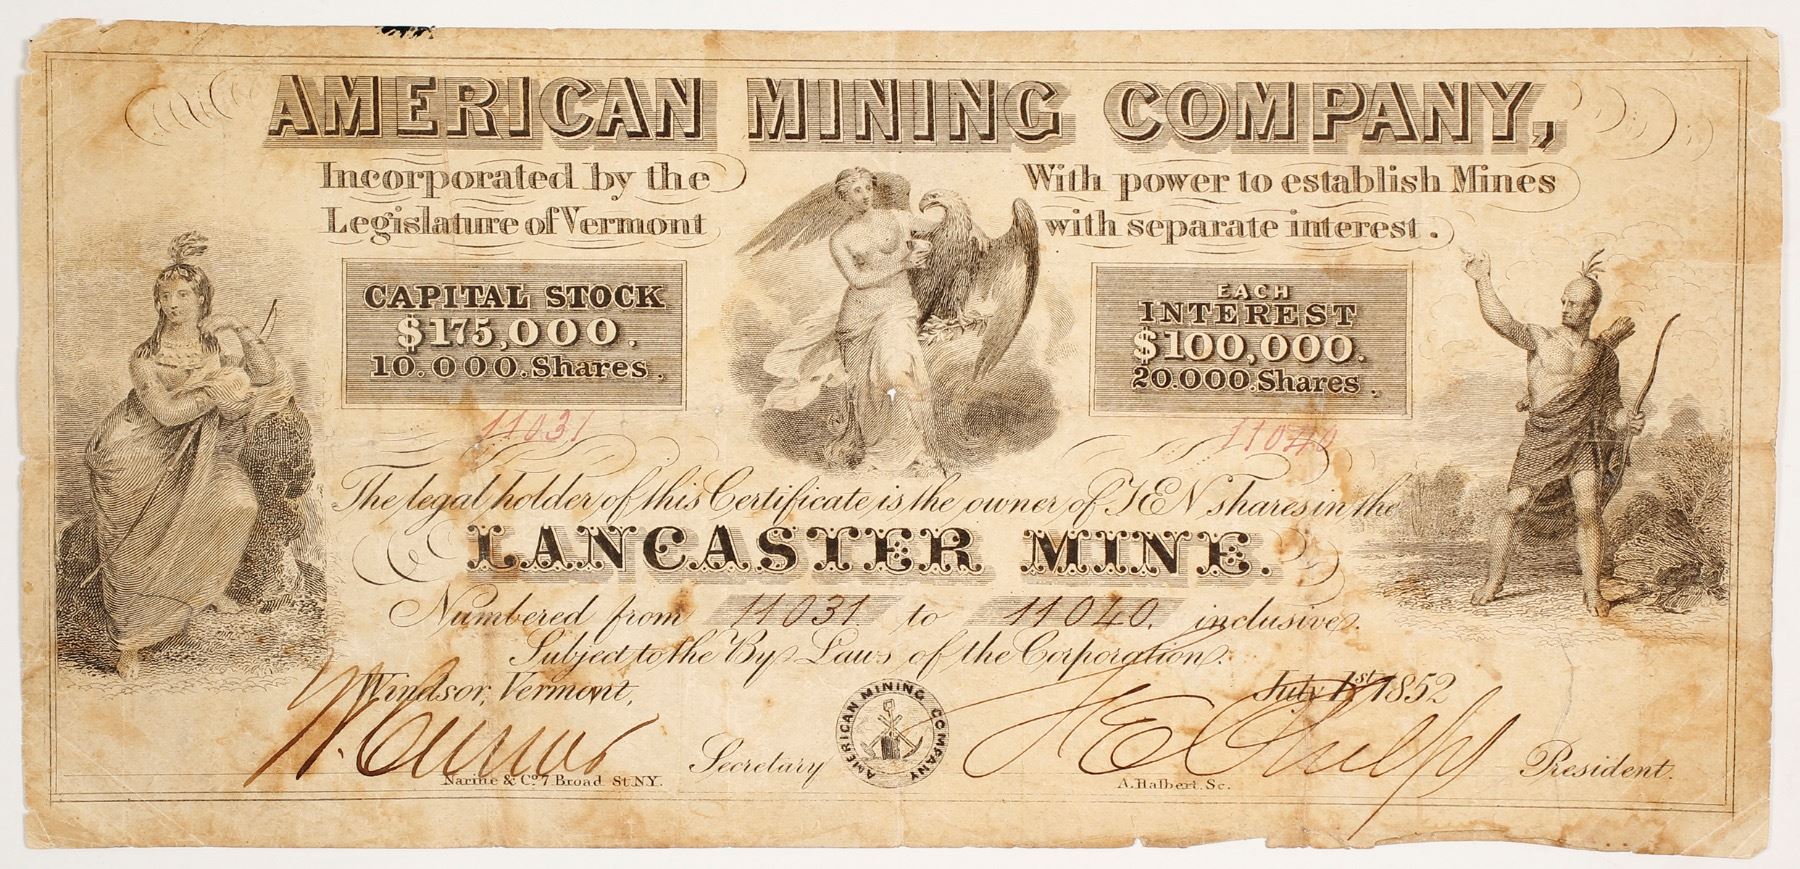 AMERICAN MINING COMPANY,
Incorporated by the
Legislature of Vermont
With power to establish Mines
with separate interest.
CAPITAL STOCK
$175,000.
10.000. Shares.
EACH
INTEREST
$100,000.
20.000. Shares.
11031
11040
The legal holder of this Certificate is the owner of TEN shares in the
LANCASTER MINE.
Numbered from 11031. to 11040. inclusive.
Subject to the By Laws of the Corporation.
Windsor, Vermont,
July 1st 1852
Secretary
AMERICAN MINING COMPANY
President.
Narine & Co. 7 Broad St. N.Y.
A. Halbert. Sc.